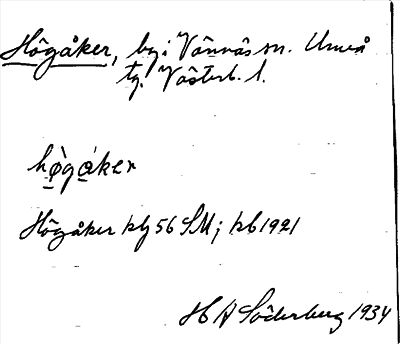 Högåker, by i Vännäs sn. Umeå
tg. Västerb. l.
hø̀gákɛr
Högåker kg 56 SM; kb 1921
H A Söderberg 1934